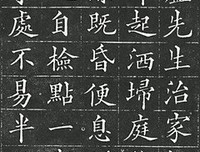 先生治家
起洒埽庭
既昏便息
自檢點一
處不易半